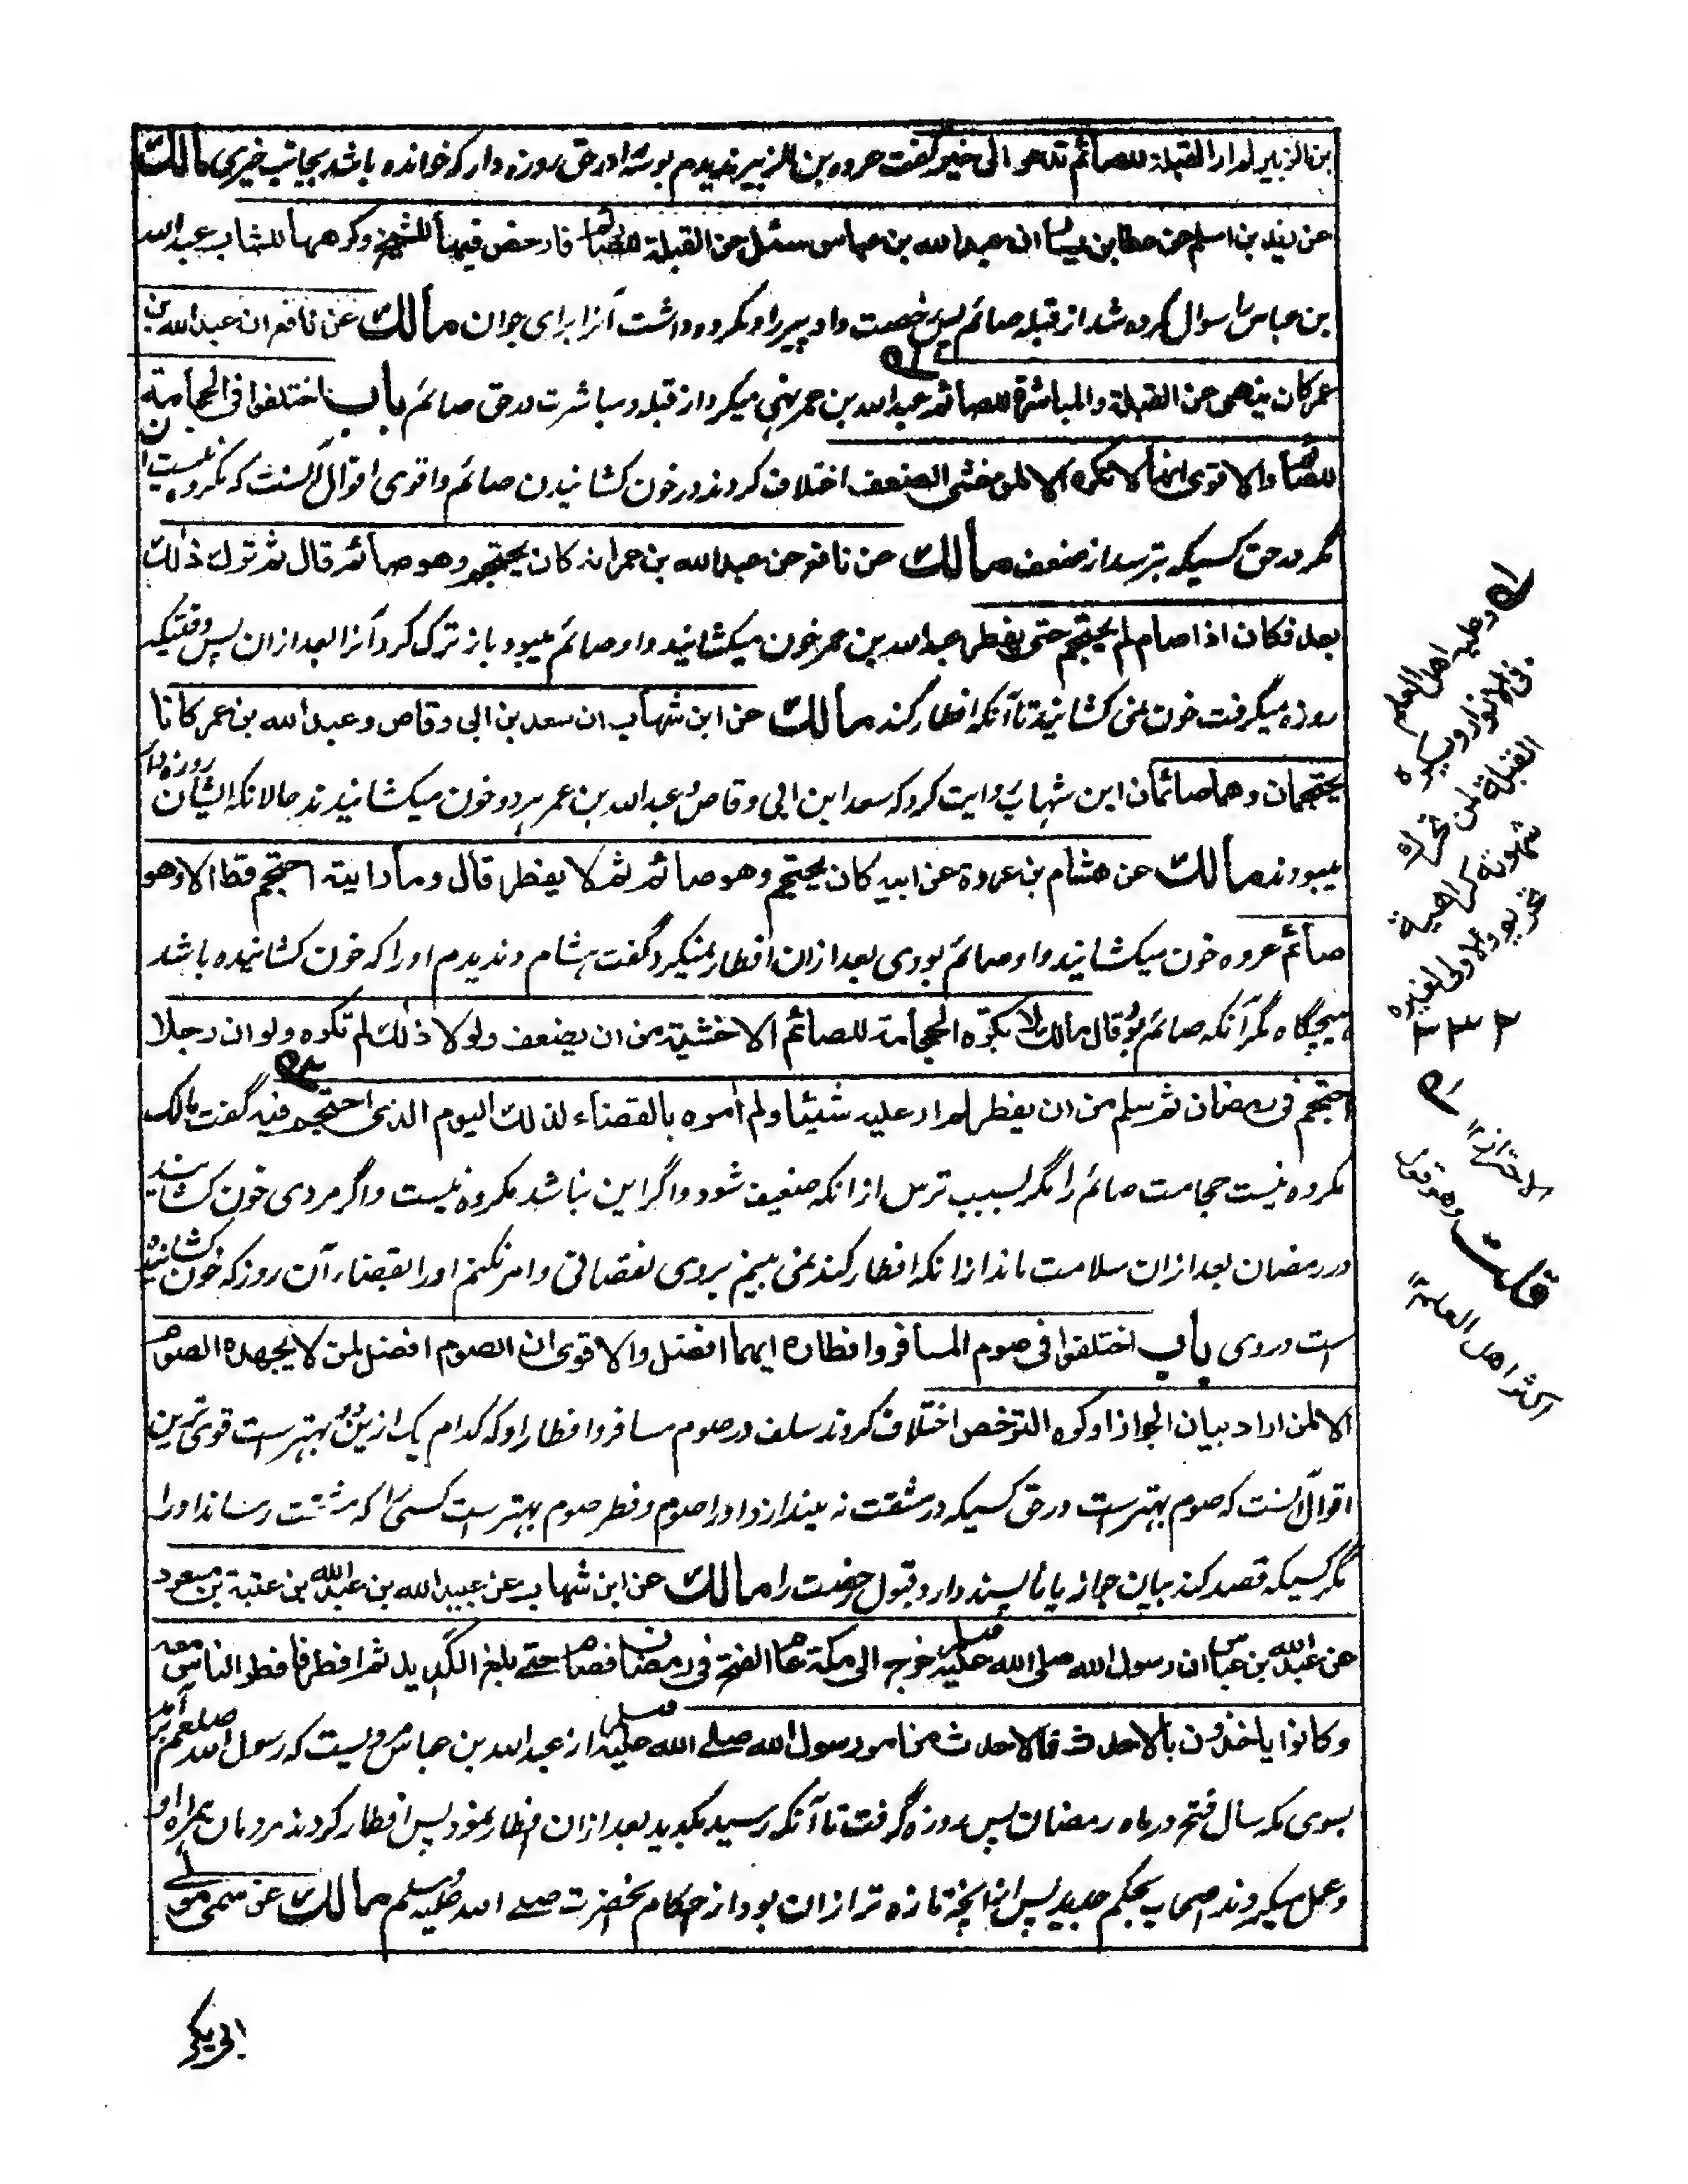 بن الزبير لم ار القبلة للصائم تدعو الى خير گفت عروه بن الزبیر ندیدم بوسه را در حق روزه دار که خوانده باشد بجانب خیری مالك
عن زيد بن اسلم عن عطا بن يسار ان عبد الله بن عباس سئل عن القبلة للصائم فارخص فيها للشيخ وكرهها للشاب عبد الله
بن عباس را سوال کرده شد از قبله صائم پس رخصت داد پیر را و مکروه داشت آنرا برای جوان مالك عن نافع ان عبد الله بن
عمر كان ينهى عن القبلة والمباشرة للصائم عبد الله بن عمر نهی میکرد از قبله و مباشرت در حق صائم باب اختلفوا فى الحجامة
للصائم والاقوى انها لا تكره الا لمن خشى الضعف اختلاف کردند در خون کشانیدن صائم و اقوی اقوال آنست که مکروه نیست
مگر در حق کسیکه بترسد از ضعف مالك عن نافع عن عبد الله بن عمر انه كان يحتجم وهو صائم قال ثم ترك ذلك
بعد فكان اذا صام لم يحتجم حتى يفطر عبد الله بن عمر خون میکشانید و او صائم میبود باز ترک کرد آنرا بعد ازان پس وقتیکه
روزه میگرفت خون نمی کشانید تا آنکه افطار کند مالك عن ابن شهاب ان سعد بن ابى وقاص وعبد الله بن عمر كانا
يحتجمان وهما صائمان ابن شهاب روایت کرد که سعد ابن ابی وقاص و عبد الله بن عمر هر دو خون میکشانیدند حالانکه ایشان روزه دار
میبودند مالك عن هشام بن عروة عن ابيه كان يحتجم وهو صائم ثم لا يفطر قال وما رايته احتجم قط الا وهو
صائم عروه خون میکشانید و او صائم بودی بعد ازان افطار نمیکرد گفت هشام و ندیدم او را که خون کشانیده باشد
هیچگاه مگر آنکه صائم بود قال مالك لا تكره الحجامة للصائم الا خشية من ان يضعف ولولا ذلك لم تكره ولو ان رجلا
احتجم فى رمضان ثم سلم من ان يفطر لم ار عليه شيئا ولم آمره بالقضاء لذلك اليوم الذى احتجم فيه گفت مالک
مکروه نیست حجامت صائم را مگر بسبب ترس از آنکه ضعیف شود و اگر این نباشد مکروه نیست و اگر مردی خون کشانید
در رمضان بعد ازان سلامت ماند از آنکه افطار کند نمی بینم بروی نقصانی و امر نکنم او را بقضاء آن روز که خون کشانیده
است دروی باب اختلفوا فى صوم المسافر وافطاره ايهما افضل والاقوى ان الصوم افضل لمن لا يجهده الصوم
الا لمن اراد بيان الجواز او كره الترخص اختلاف کردند سلف در صوم مسافر و افطار او که کدام یک ازین دو بهتر است قوی ترین
اقوال آنست که صوم بهتر است در حق کسیکه در مشقت نیندازد او را صوم و فطر بهتر است کسی را که مشقت رساند او را
مگر کسیکه قصد کند بیان جواز یا ناپسند دارد قبول رخصت را مالك عن ابن شهاب عن عبيد الله بن عبد الله بن عتبة بن مسعود
عن عبد الله بن عباس ان رسول الله صلى الله عليه وسلم خرج الى مكة عام الفتح فى رمضان فصام حتى بلغ الكديد ثم افطر فافطر الناس معه
وكانوا ياخذون بالاحدث فالاحدث من امر رسول الله صلى الله عليه وسلم از عبد الله بن عباس مرویست که رسول الله صلعم برآمد
بسوی مکه سال فتح در ماه رمضان پس روزه گرفت تا آنکه رسید بکدید بعد ازان افطار نمود پس افطار کردند مردمان همراه او
و عمل میکردند اصحاب بحکم جدید پس آنچه تازه تر ازان بود از احکام آنحضرت صلى الله عليه وسلم مالك عن سمى مولى
وعليه اهل العلم
القبلة لمن تحرك
شهوته كراهية
والاولى لغيره
قلت وهو قول
اكثر اهل العلم
ابى بكر